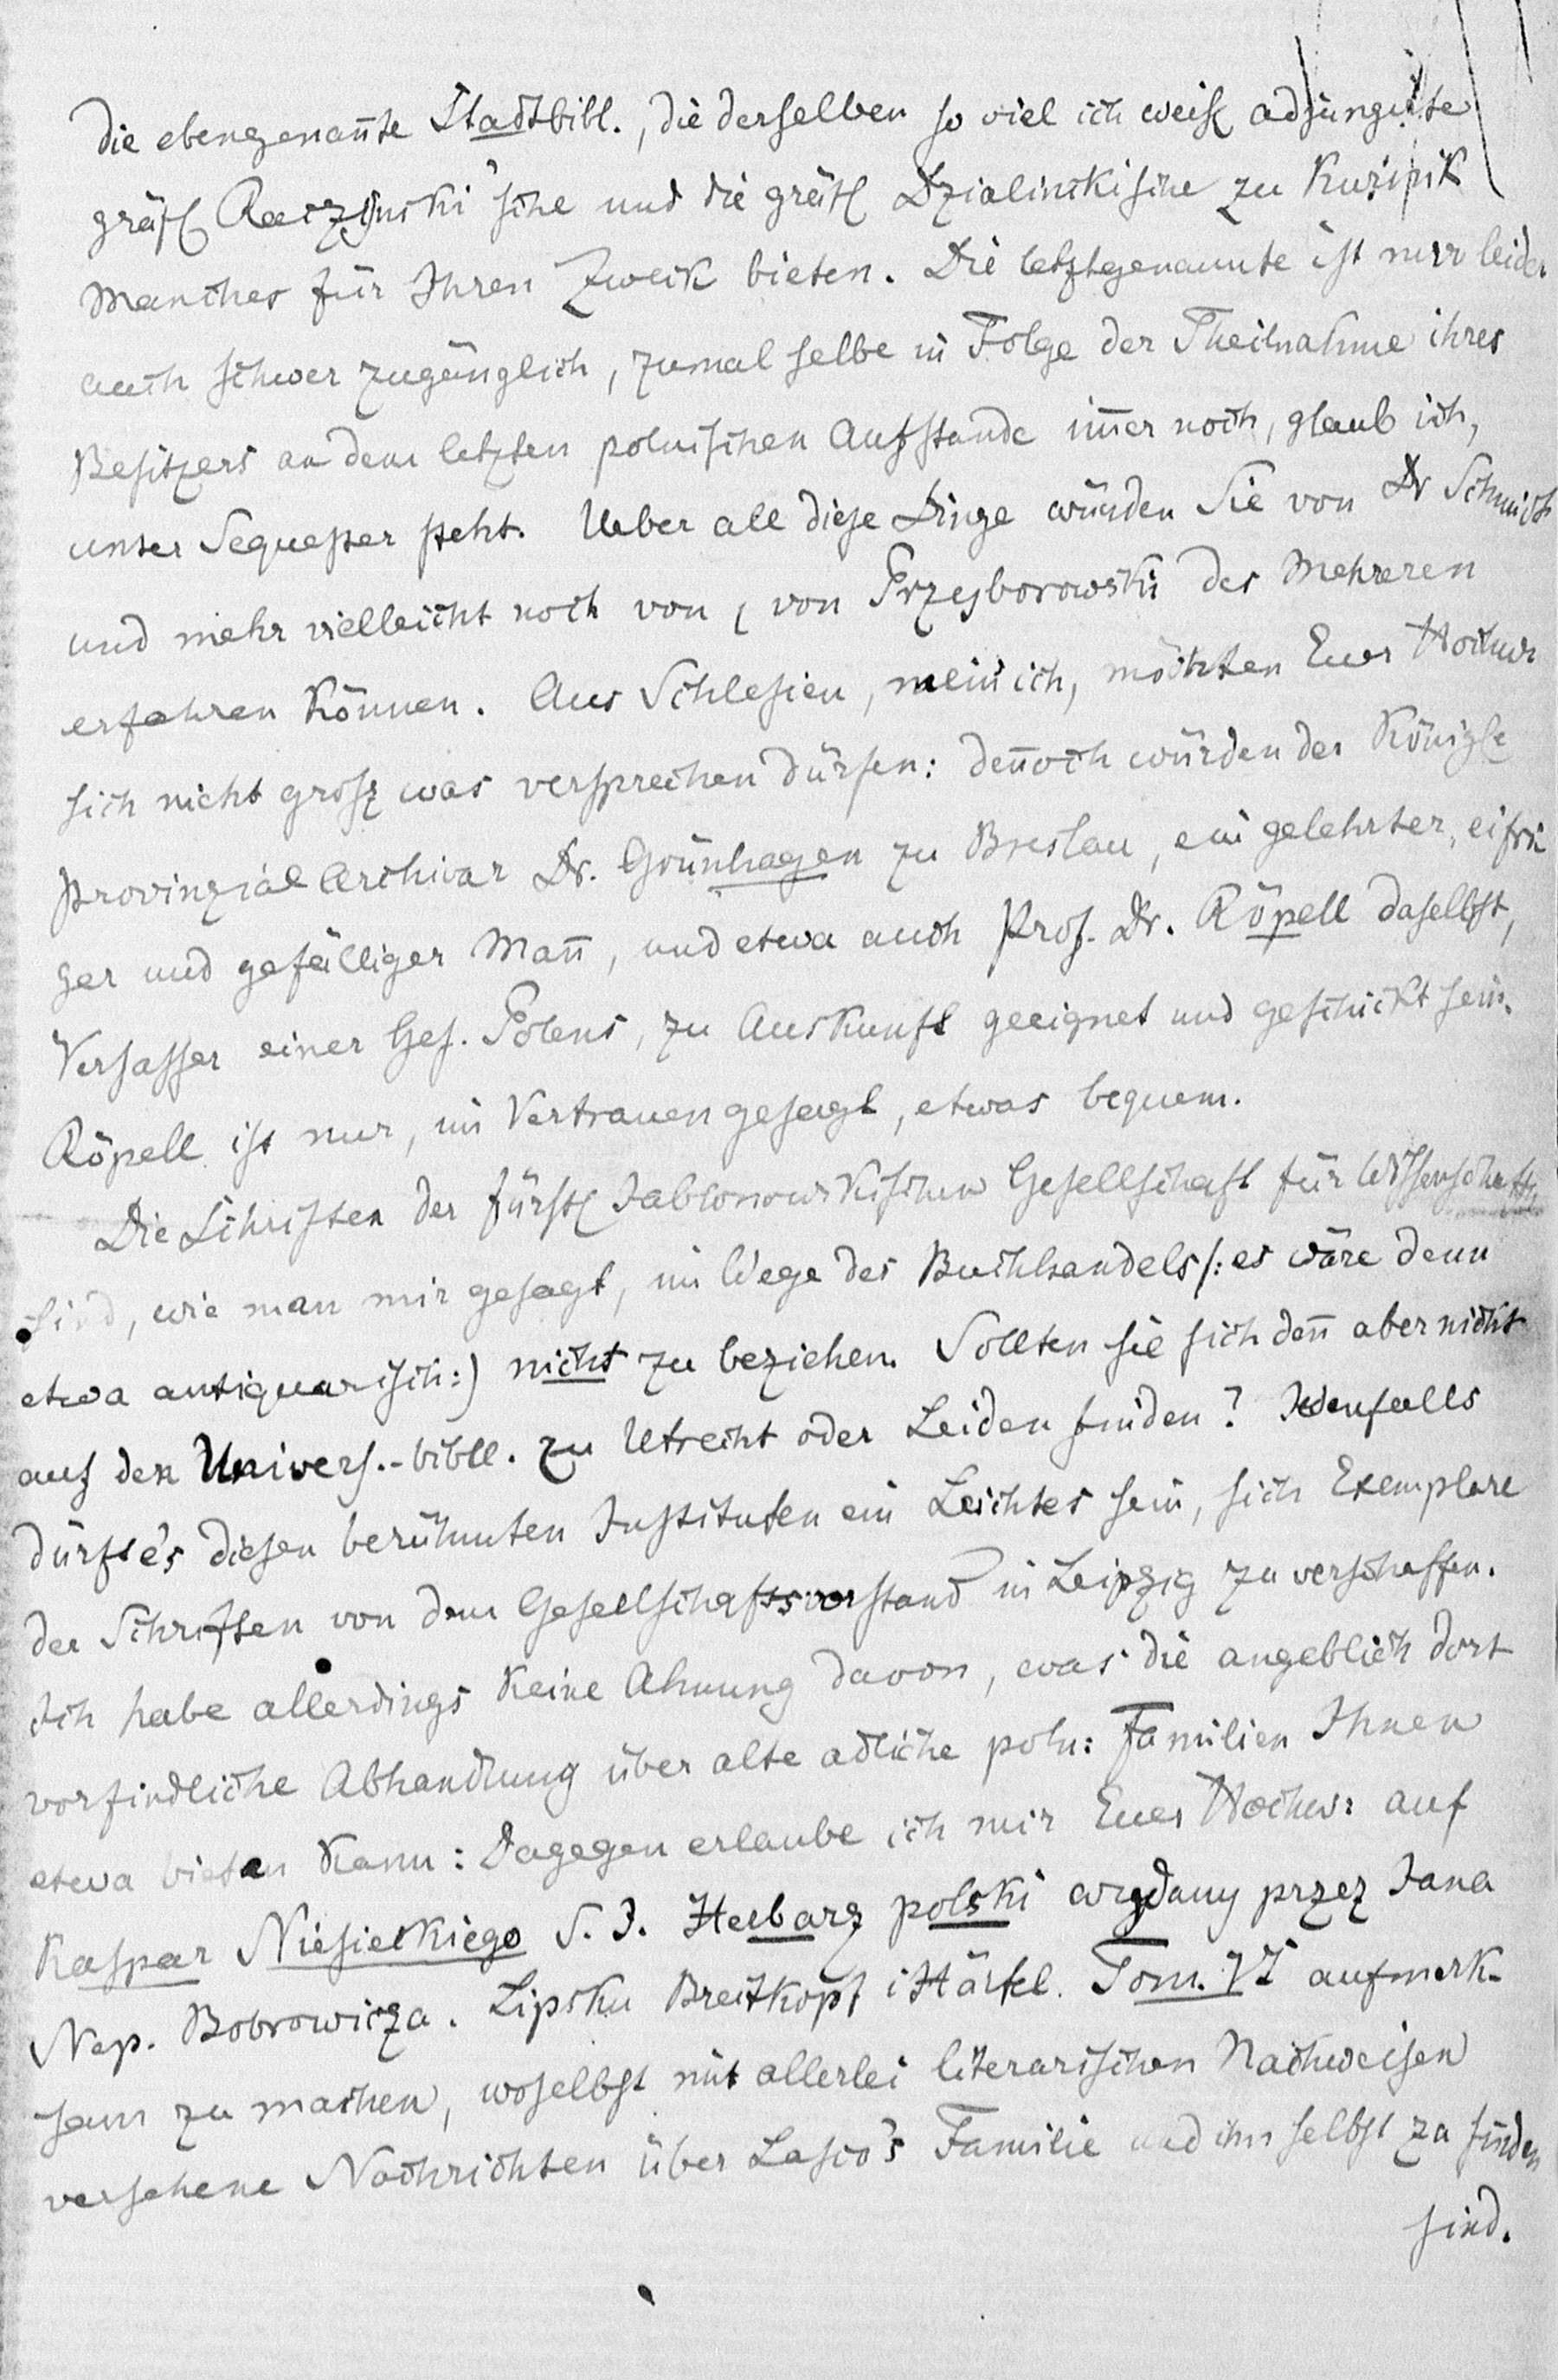 die ebengenan̄te Stadtbibl., die derselben so viel ich weiß adjungirte
gräfl Raczynski'sche und die gräfl Dzialinskische zu Kurnik
Manches für Ihren Zweck bieten. Die letztgenannte ist nur leider
auch schwer zugänglich, zumal selbe in Folge der Theilnahme ihres
Besitzers an dem letzten polnischen Aufstande im̄er noch, glaub ich,
unter Sequester steht. Ueber all diese Dinge würden Sie von Dr Schmidt
und mehr vielleicht noch von von Przyborowski des Mehreren
erfahren können. Aus Schlesien, mein ich, möchten Euer Hochw
sich nicht groß was versprechen dürfen: den̄och würden der Königl
Provinzial Archivar Dr. Grünhagen zu Breslau, ein gelehrter, eifri
ger und gefälliger Man̄, und etwa auch Prof. Dr. Röpell daselbst,
Verfasser einer Ges. Polens, zu Auskunft geeignet und geschickt sein.
Röpell ist nur, im Vertrauen gesagt, etwas bequem.
Die Schriften der fürstl Jablonowskischen Gesellschaft für Wissenschaft
sind, wie man mir gesagt, im Wege des Buchhandels /: es wäre denn
etwa antiquarisch :) nicht zu beziehen. Sollten sie sich den̄ aber nicht
auf den Univers.-bibll. zu Utrecht oder Leiden finden? Jedenfalls
dürfte's diesen berühmten Instituten ein Leichtes sein, sich Exemplare
der Schriften von dem Gesellschaftsvorstand in Leipzig zu verschaffen.
Ich habe allerdings keine Ahnung davon, was die angeblich dort
vorfindliche Abhandlung über alte adliche poln: Familien Ihnen
etwa bieten kann: Dagegen erlaube ich mir Euer Hochw: auf
Kaspar Niesieckiego S. J. Herbarz polski wydany przez Jana
Nep. Bobrowicza. Lipsku Breitkopf i Härtel. Tom. VI aufmerk-
sam zu machen, woselbst mit allerlei literarischen Nachweisen
versehene Nachrichten über Lasco's Familie und ihn selbst zu finden
sind.